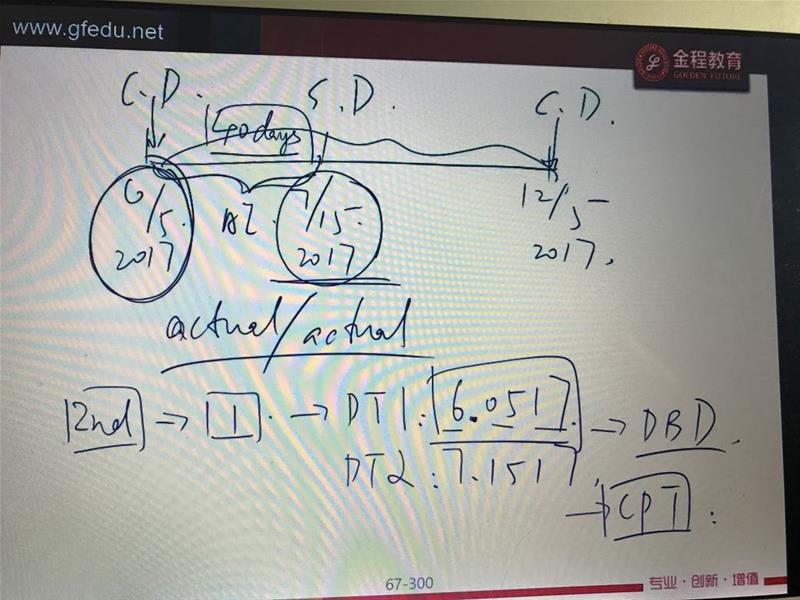 www.gfedu.net
金程教育
GOLDEN FUTURE
C.D. S.D. C.D.
40days
6/5. 2017
AI.
7/15 2017
12/5 2017.
actual/actual
2nd → 1. → DT1: 6.0517. → DBD.
DT2: 7.1517
→ CPT:
67-300
专业·创新·增值